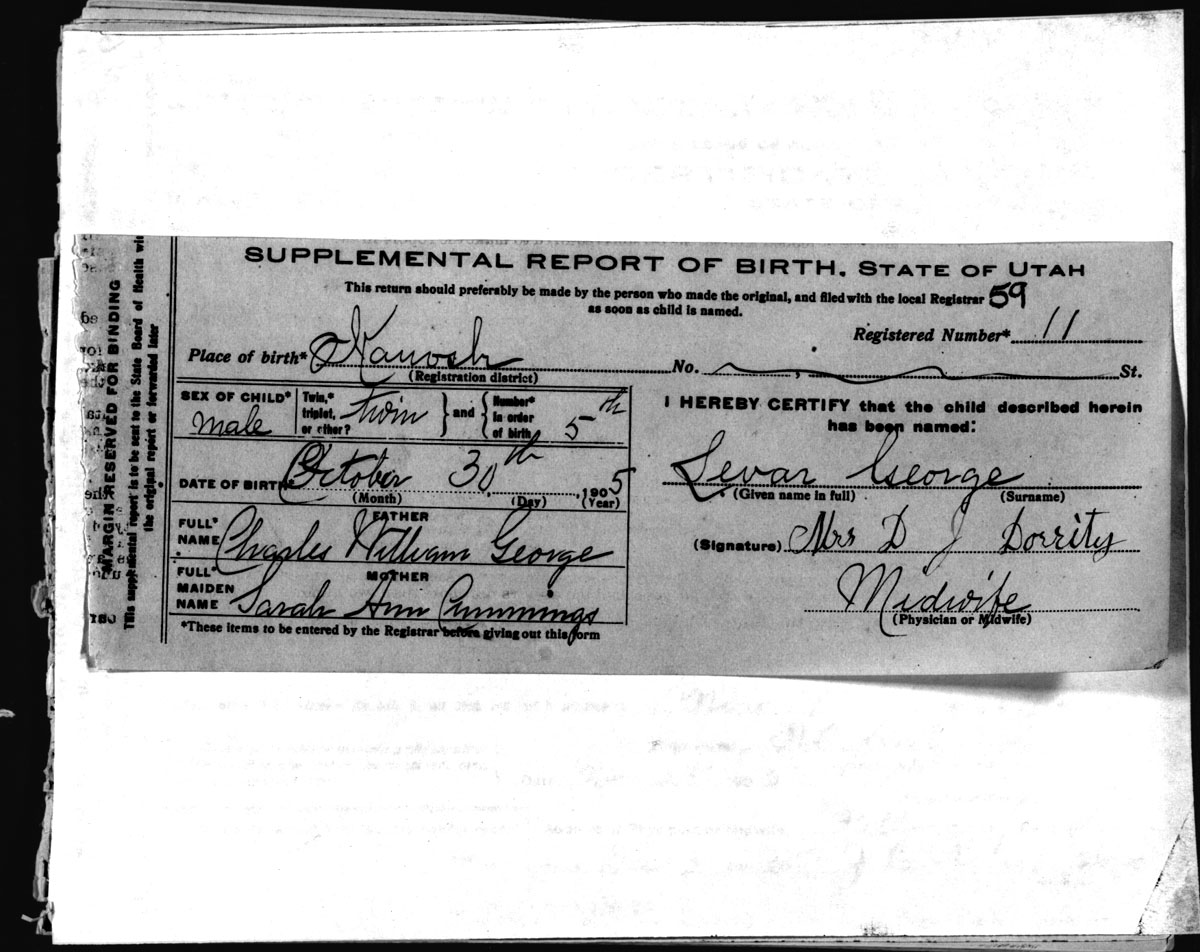 SUPPLEMENTAL REPORT OF BIRTH. STATE OF UTAH
This return should preferably be made by the person who made the original, and filed with the local Registrar 59
as soon as child is named.
Registered Number* 11
Place of birth* Kanosh No. St.
(Registration district)
SEX OF CHILD* male
Twin,* triplet, or other? twin
and
Number* in order of birth 5th
DATE OF BIRTH* October 30th 1905
(Month) (Day) (Year)
FATHER
FULL* NAME Charles William George
MOTHER
FULL* MAIDEN NAME Sarah Ann Cummings
*These items to be entered by the Registrar before giving out this form
I HEREBY CERTIFY that the child described herein
has been named:
Levar George
(Given name in full) (Surname)
(Signature) Mrs D J Dorrity
Midwife
(Physician or Midwife)
MARGIN RESERVED FOR BINDING
This supplemental report is to be sent to the State Board of Health with
the original report or forwarded later